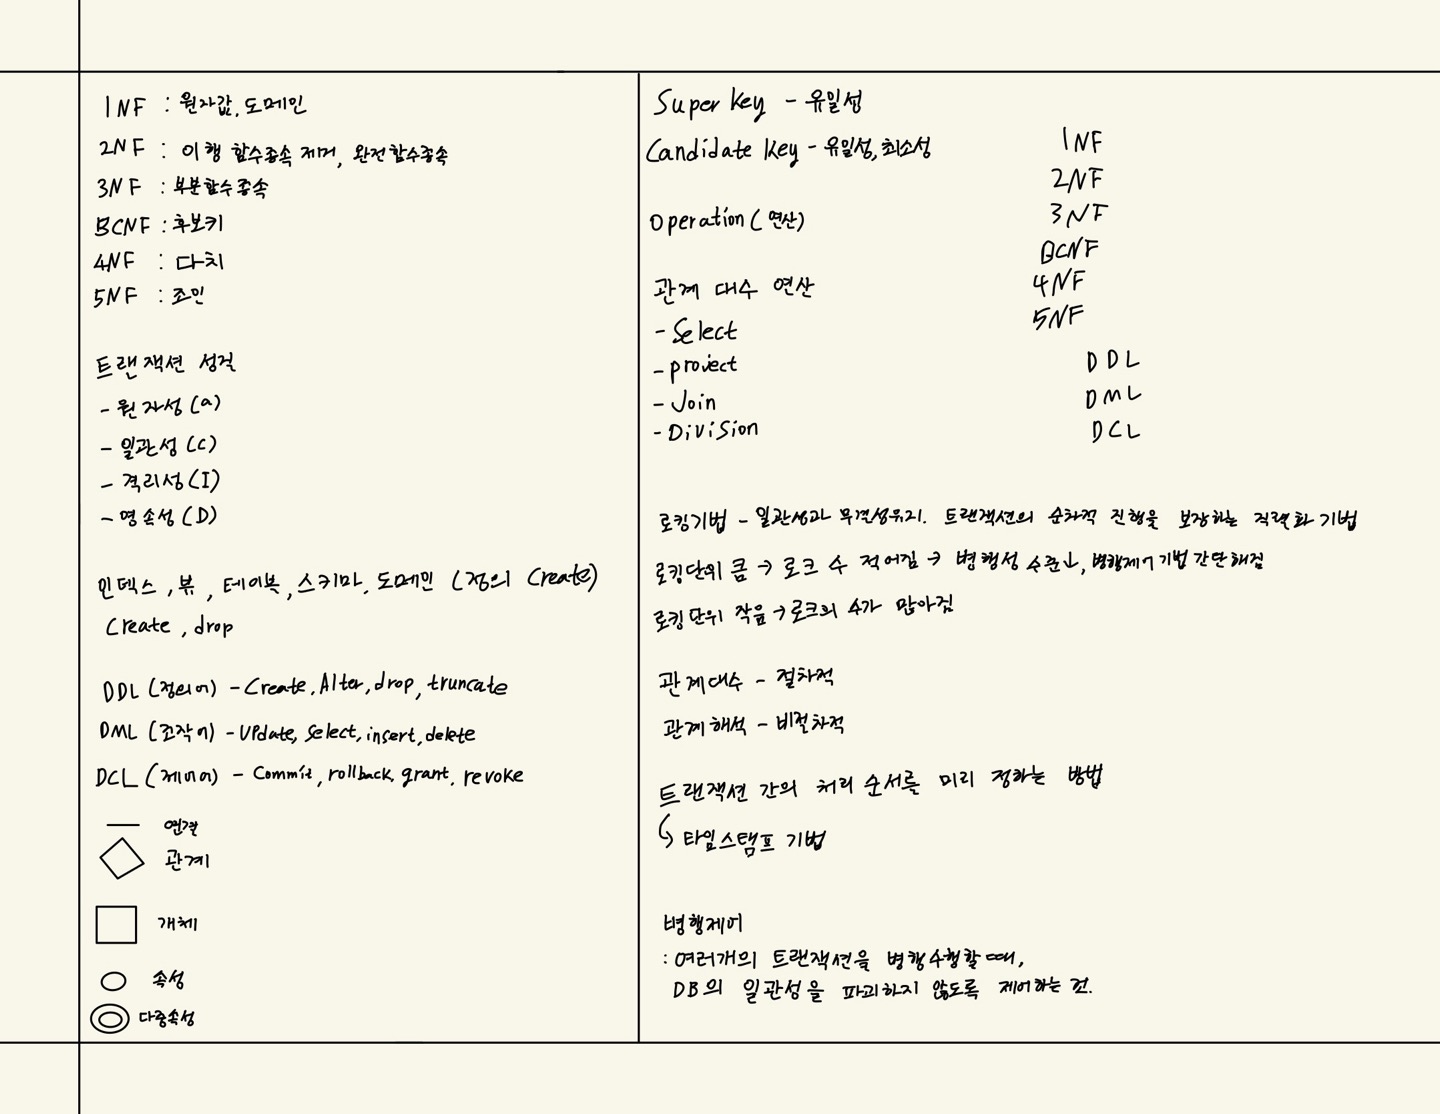 1NF : 원자값, 도메인
2NF : 이행 함수종속 제거, 완전함수종속
3NF : 부분함수종속
BCNF : 후보키
4NF : 다치
5NF : 조인
트랜잭션 성질
- 원자성 (a)
- 일관성 (C)
- 격리성 (I)
- 영속성 (D)
인덱스, 뷰, 테이블, 스키마, 도메인 (정의 Create)
Create, drop
DDL (정의어) - Create, Alter, drop, truncate
DML (조작어) - UPdate, select, insert, delete
DCL (제어어) - Commit, rollback, grant, revoke
연결
관계
개체
속성
다중속성
Super Key - 유일성
Candidate Key - 유일성, 최소성
Operation (연산)
관계 대수 연산
- Select
- project
- Join
- Division
1NF
2NF
3NF
BCNF
4NF
5NF
DDL
DML
DCL
로킹기법 - 일관성과 무결성유지. 트랜잭션의 순차적 진행을 보장하는 직렬화 기법
로킹단위 큼 → 로크 수 적어짐 → 병행성 수준↓, 병행제어 기법 간단해짐
로킹단위 작음 → 로크의 수가 많아짐
관계대수 - 절차적
관계해석 - 비절차적
트랜잭션 간의 처리 순서를 미리 정하는 방법
↳ 타임스탬프 기법
병행제어
: 여러개의 트랜잭션을 병행수행할 때,
DB의 일관성을 파괴하지 않도록 제어하는 것.